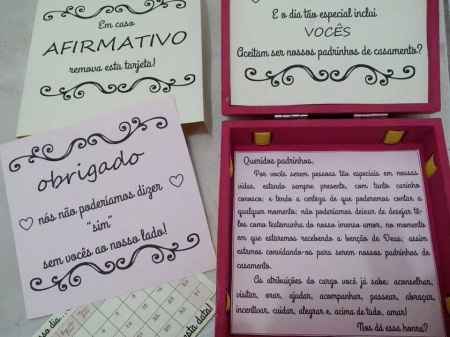 Em caso
AFIRMATIVO
remova esta tarjeta!
E o dia tão especial inclui
VOCÊS
Aceitam ser nossos padrinhos de casamento?
obrigado
nós não poderíamos dizer
"sim"
sem vocês ao nosso lado!
Queridos padrinhos,
Por vocês serem pessoas tão especiais em nossas
vidas, estando sempre presente, com tanto carinho
conosco; e tendo a certeza de que poderemos contar a
qualquer momento; não poderíamos deixar de desejar tê-
los como testemunha do nosso imenso amor, no momento
em que estaremos recebendo a benção de Deus; assim
estamos convidando-os para serem nossos padrinhos de
casamento.
As atribuições do cargo você já sabe: aconselhar,
visitar, orar, ajudar, acompanhar, passear, abraçar,
incentivar, cuidar, alegrar e, acima de tudo, amar!
Nos dá essa honra?
sso dia
esta data!